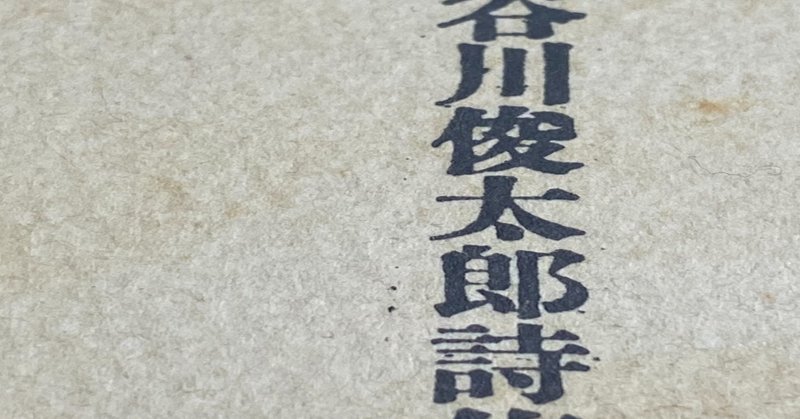 谷川俊太郎詩